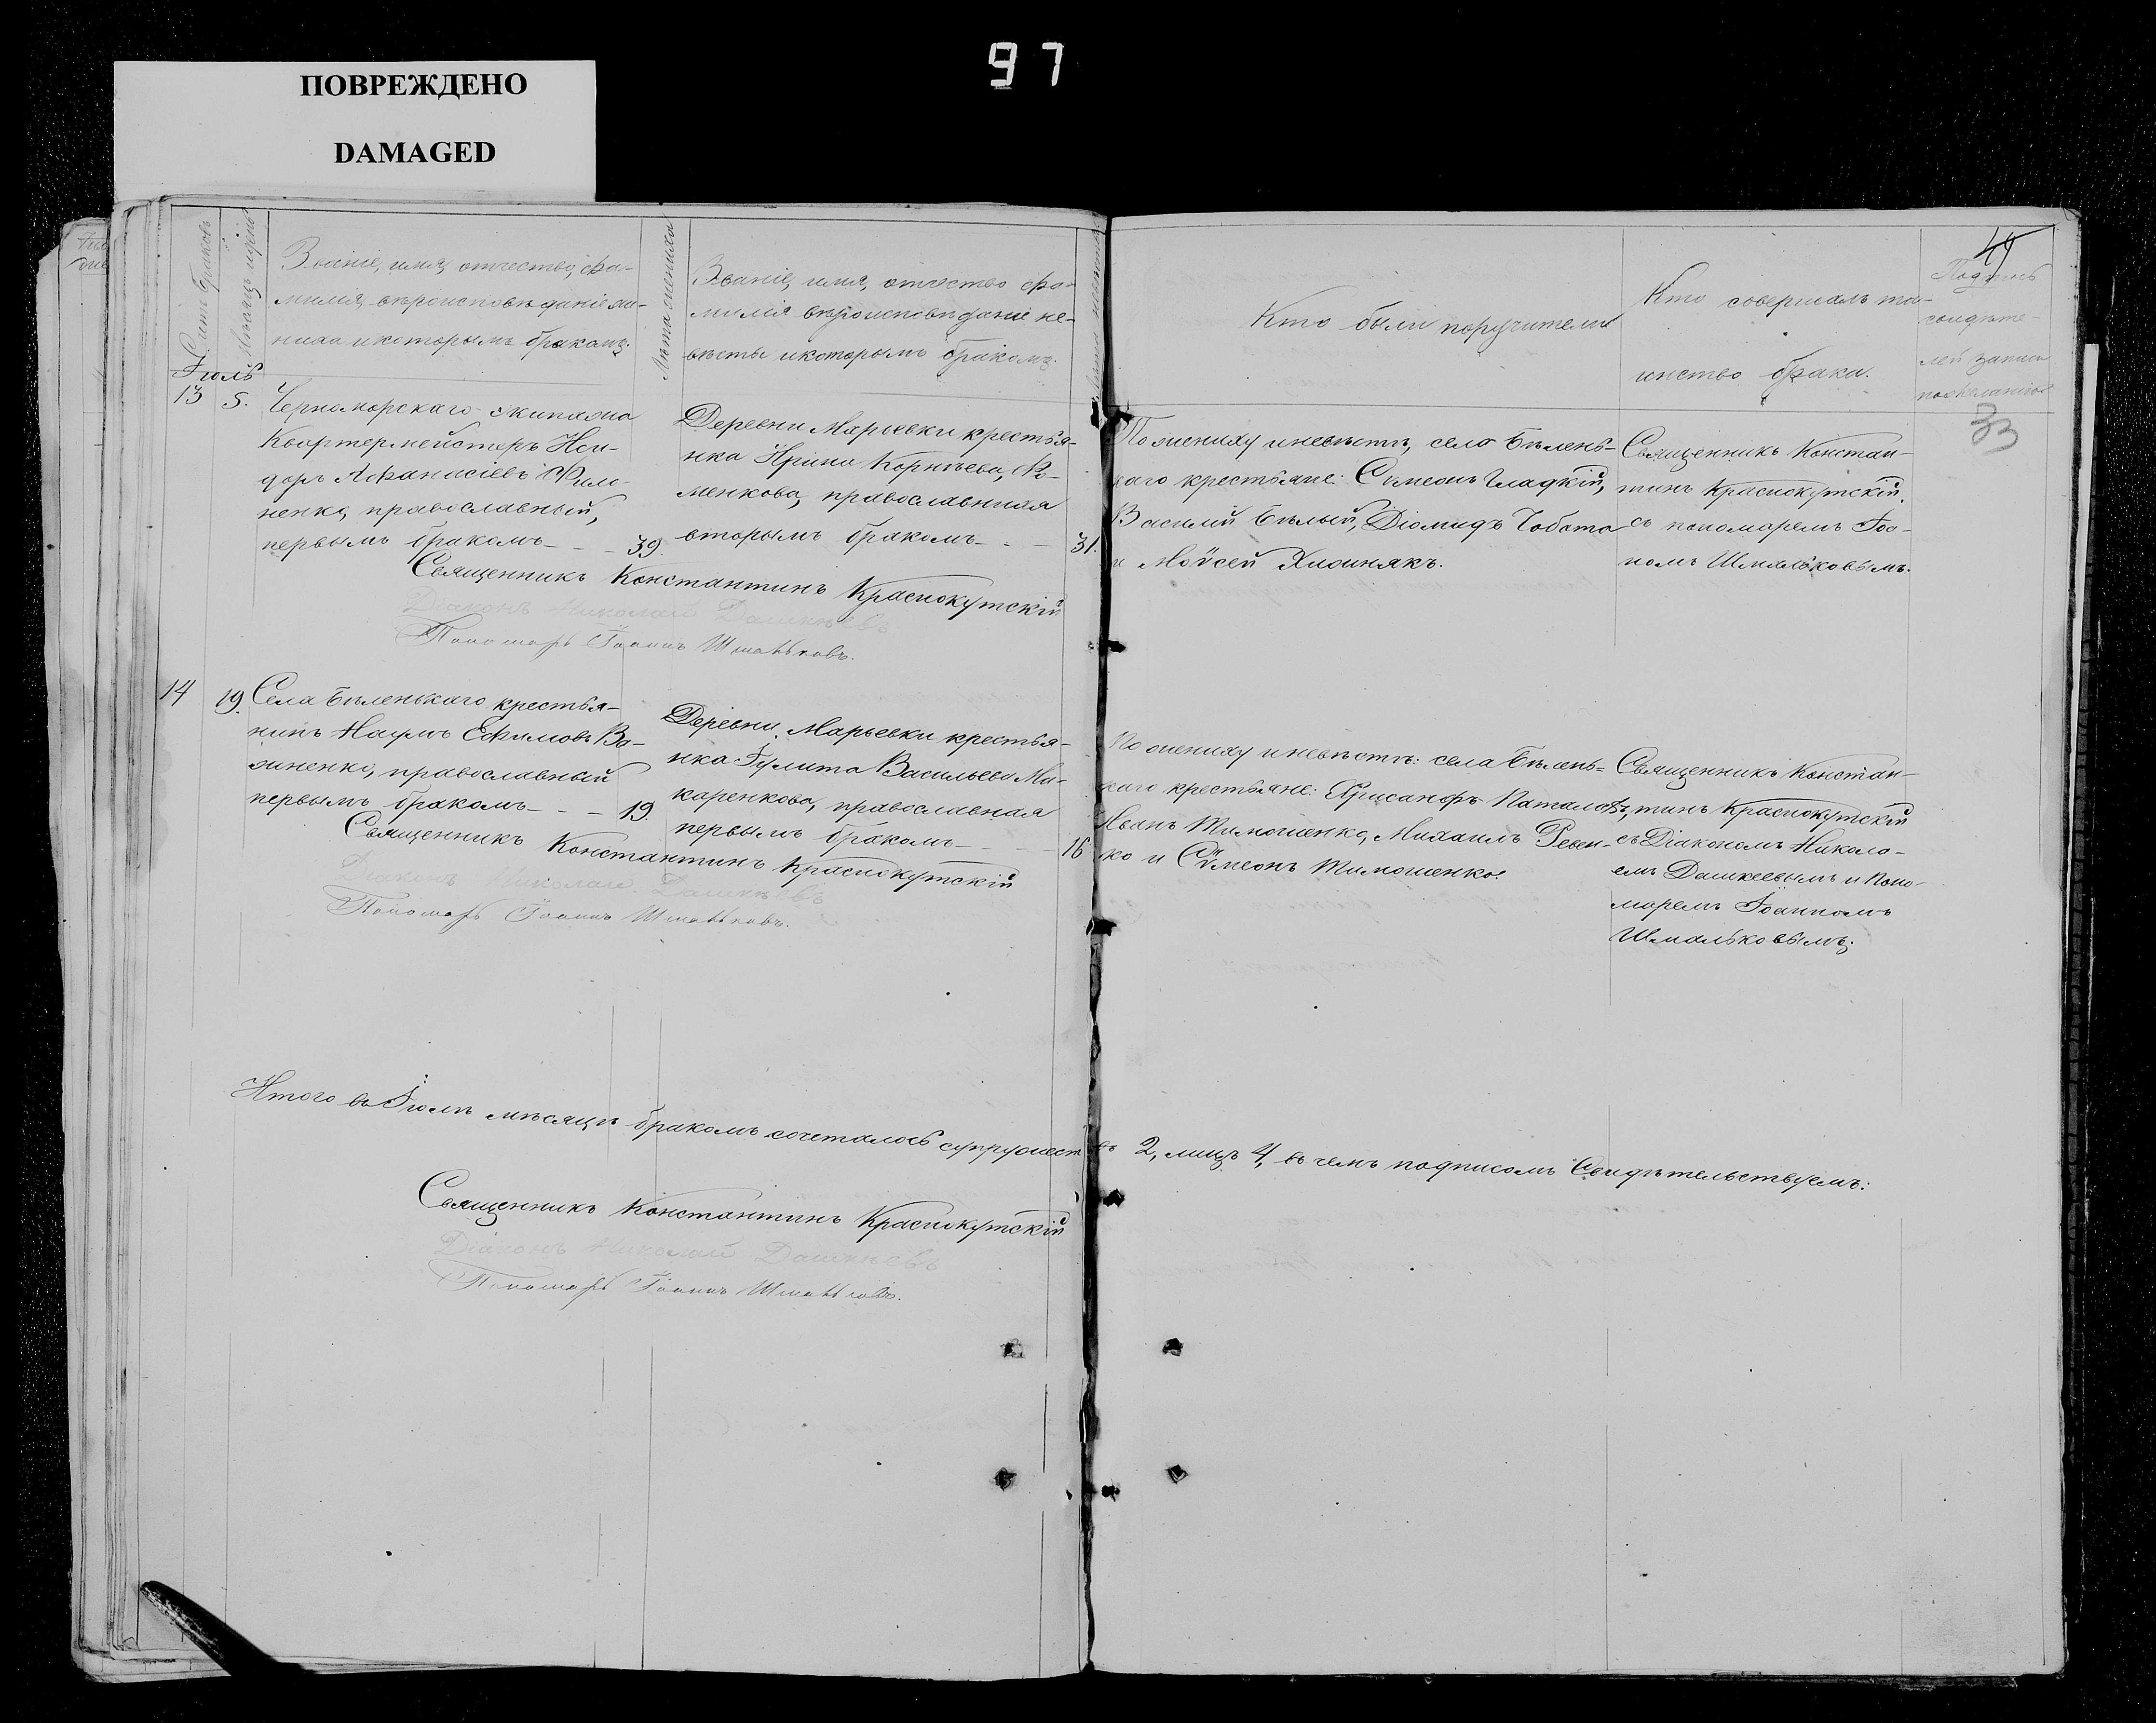 97
ПОВРЕЖДЕНО
DAMAGED
49
33
Счетъ браковъ
Мѣсяцъ и день
Званіе, имя, отчество, фа-
милія, вѣроисповѣданіе же-
ниха и которымъ бракомъ.
Лѣта жениха
Званіе, имя, отчество фа-
милія вѣроисповѣданіе не-
вѣсты и которымъ бракомъ.
Лѣта невѣсты
Кто были поручители
Кто совершалъ та-
инство брака.
Подпись
свидѣте-
лей записи
по желанію
Іюль
13 5.
Черноморскаго экипажа
Квартермейстеръ Иси-
доръ Афанасіевъ Фили-
ненко, православный,
первымъ бракомъ - - 39.
Деревни Марьевки крестья-
нка Ирина Корнѣева, Ро-
менкова, православная
вторымъ бракомъ - - 31.
По жениху и невѣстѣ, села Бѣлень-
каго крестьяне: Симеонъ Гладкій,
Василій Бѣлый, Діомидъ Чобота
и Моѵсей Хижнякъ.
Священникъ Констан-
тинъ Краснокутскій,
съ пономаремъ Іоа-
номъ Шмальковымъ.
Священникъ Константинъ Краснокутскій
Діаконъ Николай Дашкѣевъ
Пономарь Іоаннъ Шмальковъ.
14 19.
Села Бѣленькаго крестья-
нинъ Наумъ Ефимовъ Ва-
жиненко, православный
первымъ бракомъ - - 19.
Деревни Марьевки крестья-
нка Іулита Васильева Ма-
каренкова, православная
первымъ бракомъ - - 16
По жениху и невѣстѣ: села Бѣлень-
каго крестьяне: Хрисанфъ Паталовъ,
Иванъ Тимошенко, Михаилъ Ревен-
ко и Сѵмеонъ Тимошенко.
Священникъ Констан-
тинъ Краснокутскій
съ Діакономъ Никола-
емъ Дашкеевымъ и Поно-
маремъ Іоанномъ
Шмальковымъ.
Священникъ Константинъ Краснокутскій
Діаконъ Николай Дашкѣевъ
Пономарь Іоаннъ Шмальковъ.
Итого въ Іюлѣ мѣсяцѣ бракомъ сочеталось супружествъ 2, лицъ 4, въ чемъ подписомъ свидѣтельствуемъ:
Священникъ Константинъ Краснокутскій
Діаконъ Николай Дашкѣевъ
Пономарь Іоаннъ Шмальковъ.